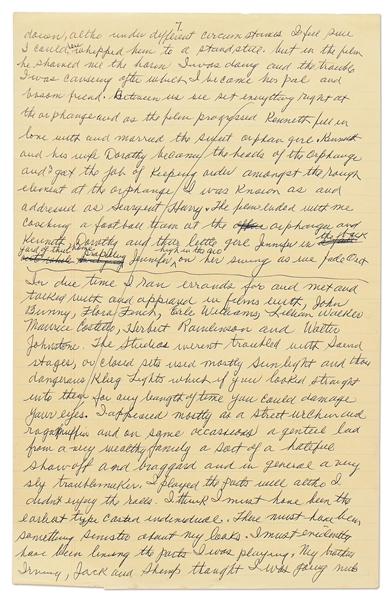 7
down, altho under different circumstances I feel sure
I could whipped him to a standstill. but in the film
he showed me the harm I was doing and the trouble
I was causing after which I became his pal and
bosom friend. Between us we set everything right at
the orphange and as the film progressed Kenneth fell in
love with and married the sweet orphan girl. Kenneth
and his wife Dorothy became the heads of the orphange
and I got the job of keeping order amongst the rough
element at the orphange I was known as and
addressed as Seargent Harry. The film ended with me
coaching a football team at the orphange and
Kenneth Dorothy and their little girl Jennifer in the back
yard of their home propelling Jennifer high in the air on her swing as we fade out
In due time I ran errands for and met and
talked with and appeared in films with, John
Bunny, Flora Finch, Earle Williams, Lillian Walker
Maurice Costello, Herbert Rawlinson and Walter
Johnstone. The Studios werent troubled with Sound
stages, or closed sets used mostly sunlight and those
dangerous Kleig Lights which if you looked straight
into them for any length of time you could damage
your eyes. I apposed mostly as a street urchin and
raggmuffin and on some occassions a genteel lad
from a very wealthy family a sort of a hateful
show off and braggard and in general a very
sly troublemaker. I played the parts well altho I
didnt enjoy the roles. I think I must have been the
earliest type casted individual. There must have been
something sinister about my looks. I must evidently
have been living the parts I was playing, My brother
Irving, Jack and Shemp thought I was going nuts